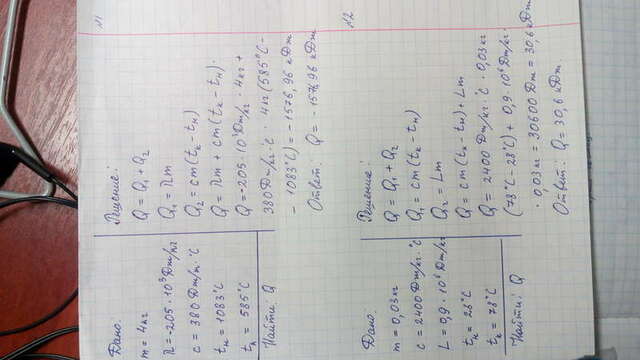 №1
Дано:
m = 4кг
λ = -205 · 10³ Дж/кг
c = 380 Дж/кг °C
tн = 1083°C
tк = 585°C
Найти: Q
Решение:
Q = Q₁ + Q₂
Q₁ = λm
Q₂ = cm(tк - tн)
Q = λm + cm(tк - tн).
Q = -205 · 10³ Дж/кг · 4кг +
380 Дж/кг·°C · 4кг (585°C -
- 1083°C) = -1576,96 кДж
Ответ: Q = -1576,96 кДж
№2
Дано:
m = 0,03кг
c = 2400 Дж/кг · °C
L = 0,9 · 10⁶ Дж/кг
tн = 28°C
tк = 78°C
Найти: Q
Решение:
Q = Q₁ + Q₂
Q₁ = cm(tк - tн)
Q₂ = Lm
Q = cm(tк - tн) + Lm
Q = 2400 Дж/кг · °C · 0,03 кг
(78°C - 28°C) + 0,9 · 10⁶ Дж/кг ·
· 0,03 кг = 30600 Дж = 30,6 кДж
Ответ: Q = 30,6 кДж.